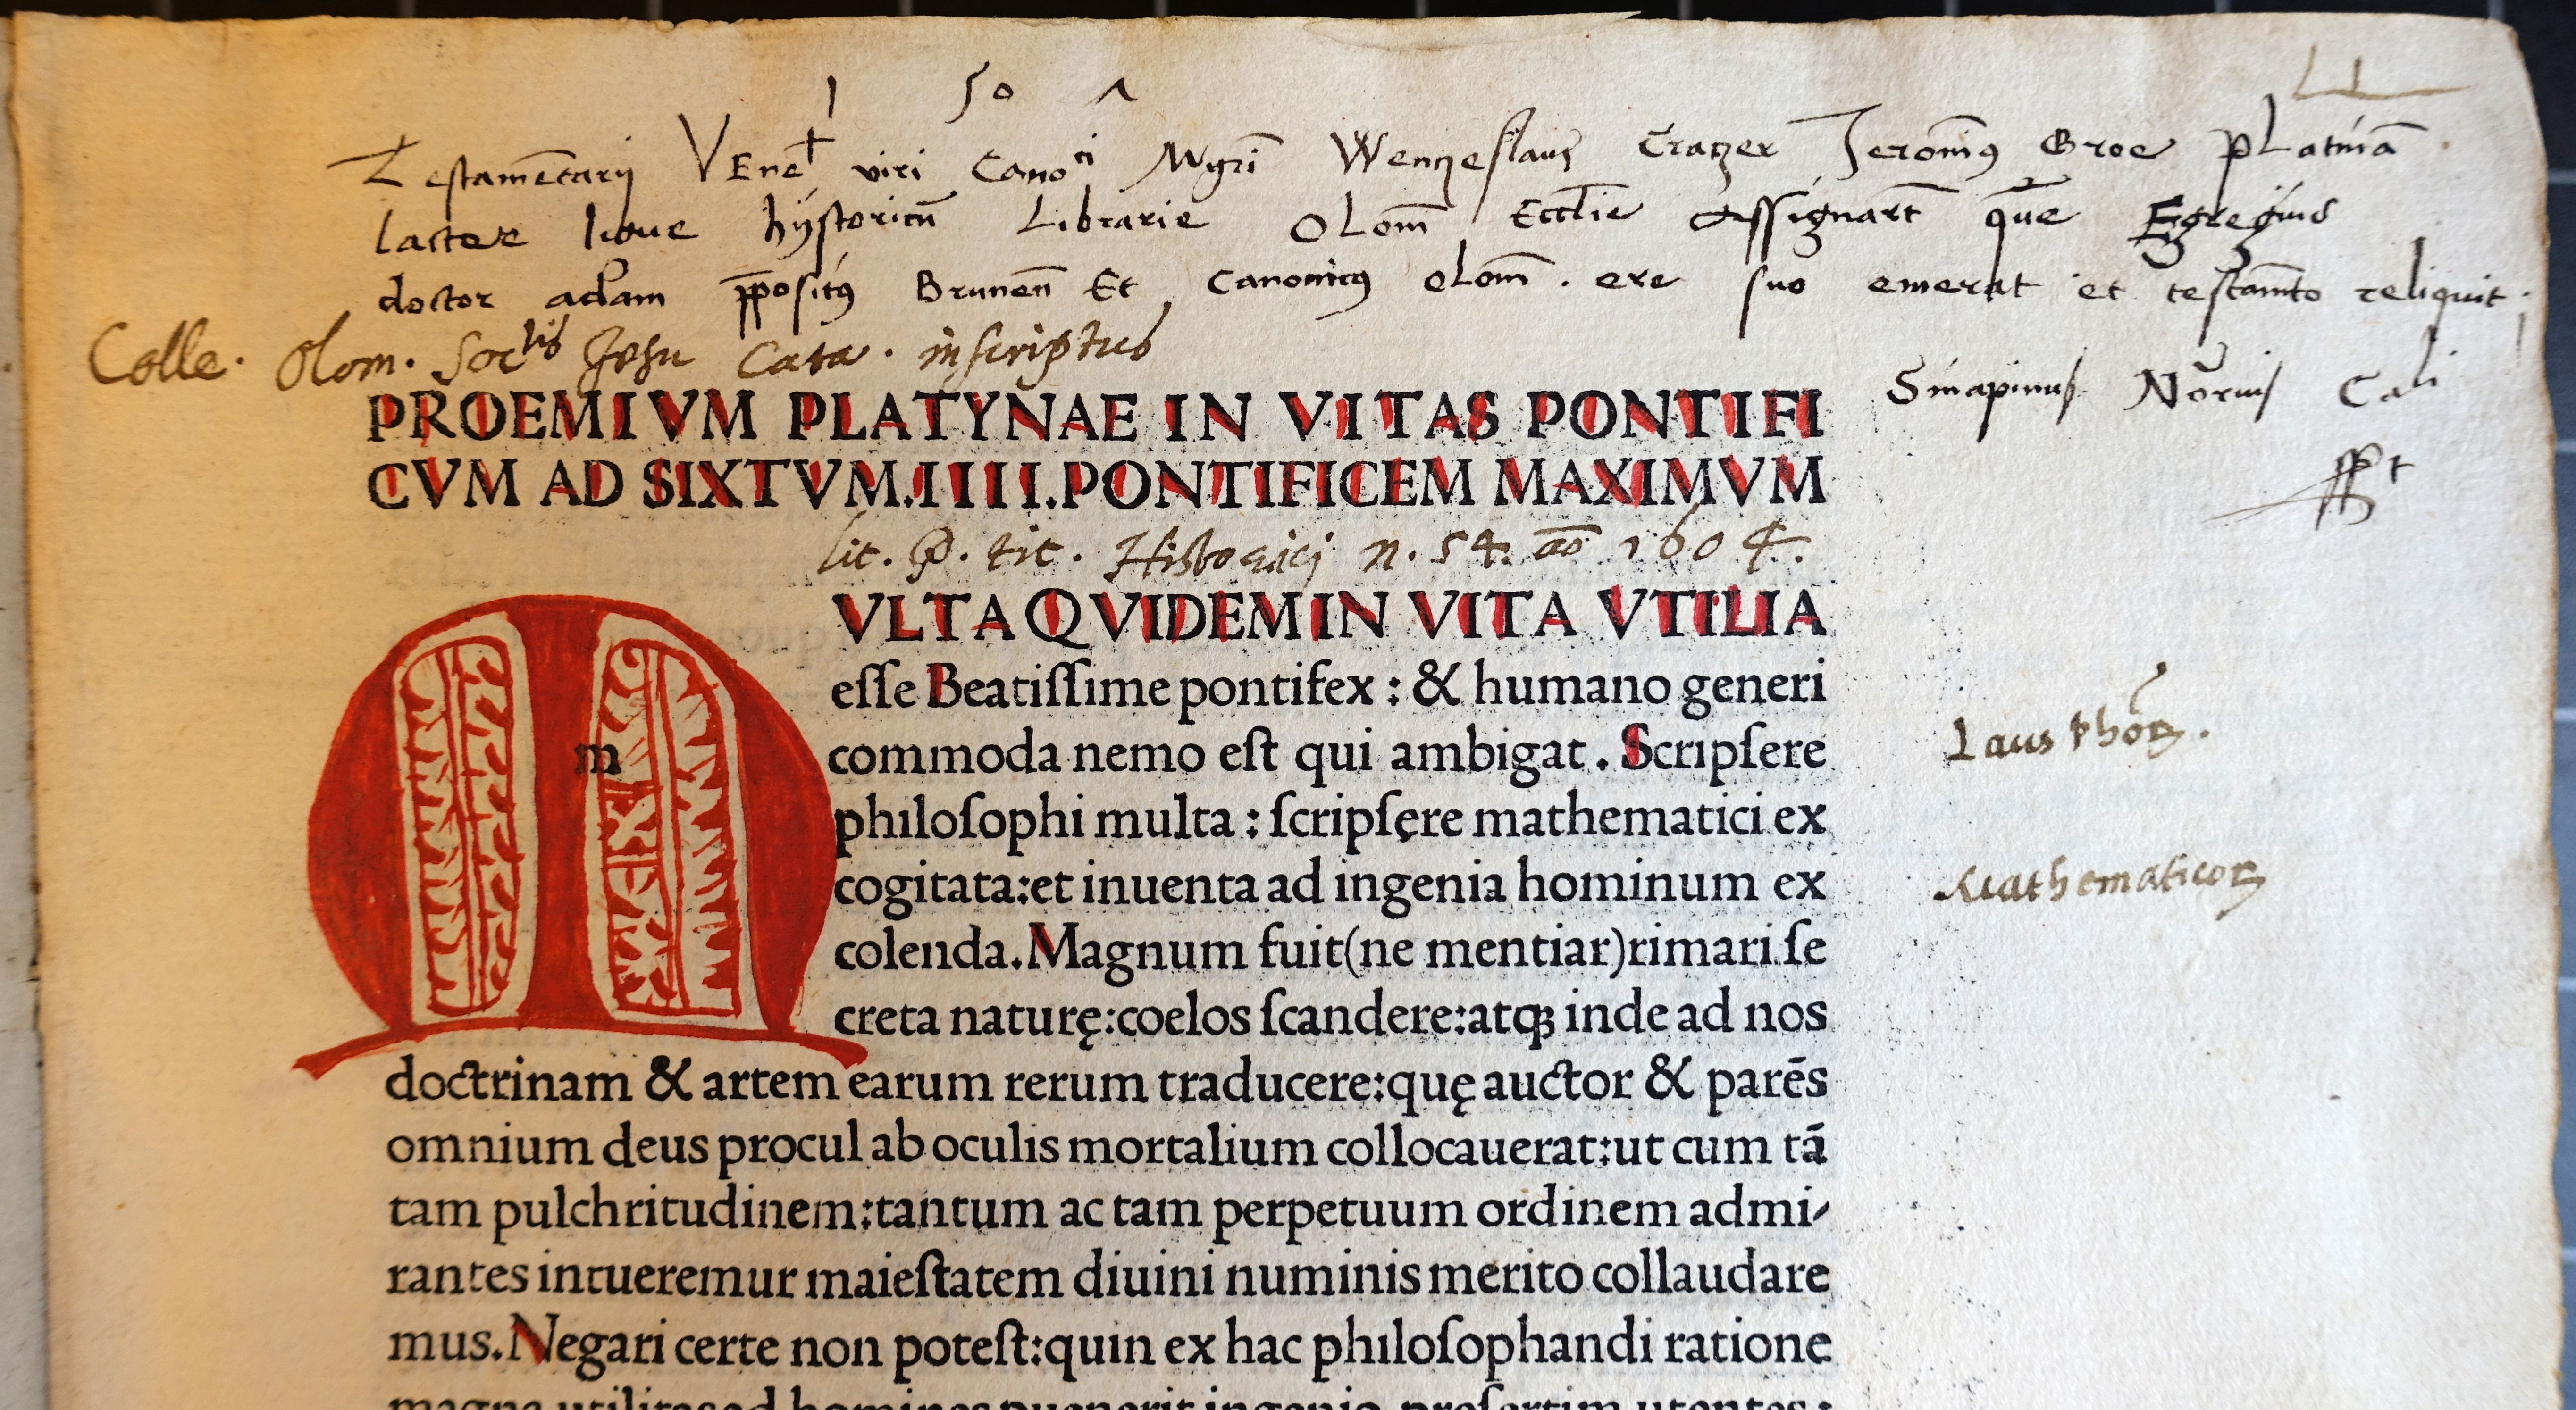 1 5 0 7
Testamentarÿ Vene͡t viri Cano^ci Mgr̄i Wenczeslaus Jeronim9 platinā
historicū Librarie Olom̄ Eccl̄ie Assignarūt quē Egregius
doctor adam p̄positus Brunen̄ Et Canonicus olom̄ . ere suo emerat et testam̄to reliquit .
Colle. Olom. Soc^tis Jesu Cata. inscriptus
PROEMIVM PLATYNAE IN VITAS PONTIFI
CVM AD SIXTVM.IIII.PONTIFICEM MAXIMVM
Sinapinus
lit. P. tit. Historici n. 54. aō 1604.
m
VLTA QVIDEM IN VITA VTILIA
eſſe Beatiſſime pontifex : & humano generi
commoda nemo eſt qui ambigat . Scripſere
Laus phōꝝ.
philoſophi multa : ſcripſęre mathematici ex
cogitata:et inuenta ad ingenia hominum ex
Mathematicoꝝ
colenda.Magnum fuit(ne mentiar)rimari ſe
creta naturę:coelos ſcandere:atqꝫ inde ad nos
doctrinam & artem earum rerum traducere:quę auctor & parēs
omnium deus procul ab oculis mortalium collocauerat:ut cum tā
tam pulchritudinem:tantum ac tam perpetuum ordinem admi⸗
rantes intueremur maieſtatem diuini numinis merito collaudare
mus.Negari certe non poteſt:quin ex hac philoſophandi ratione